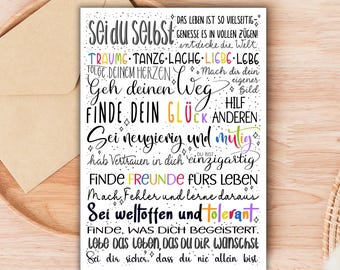 sei du selbst
DAS LEBEN IST SO VIELSEITIG
GENIESSE ES IN VOLLEN ZÜGEN!
entdecke die Welt
TRÄUME·TANZE·LACHE·LIEBE·LEBE
FOLGE DEINEM HERZEN
Mach du dein eigenes Bild
Geh deinen Weg
FINDE DEIN GLÜCK
HILF ANDEREN
Sei neugierig und mutig
hab Vertrauen in dich
DU BIST
einzigartig
FINDE FREUNDE FÜRS LEBEN
Mach Fehler und lerne daraus
Sei weltoffen und tolerant
FINDE, WAS DICH BEGEISTERT.
Lebe das Leben, das du dir wünschst
Sei dir sicher, dass du nie allein bist